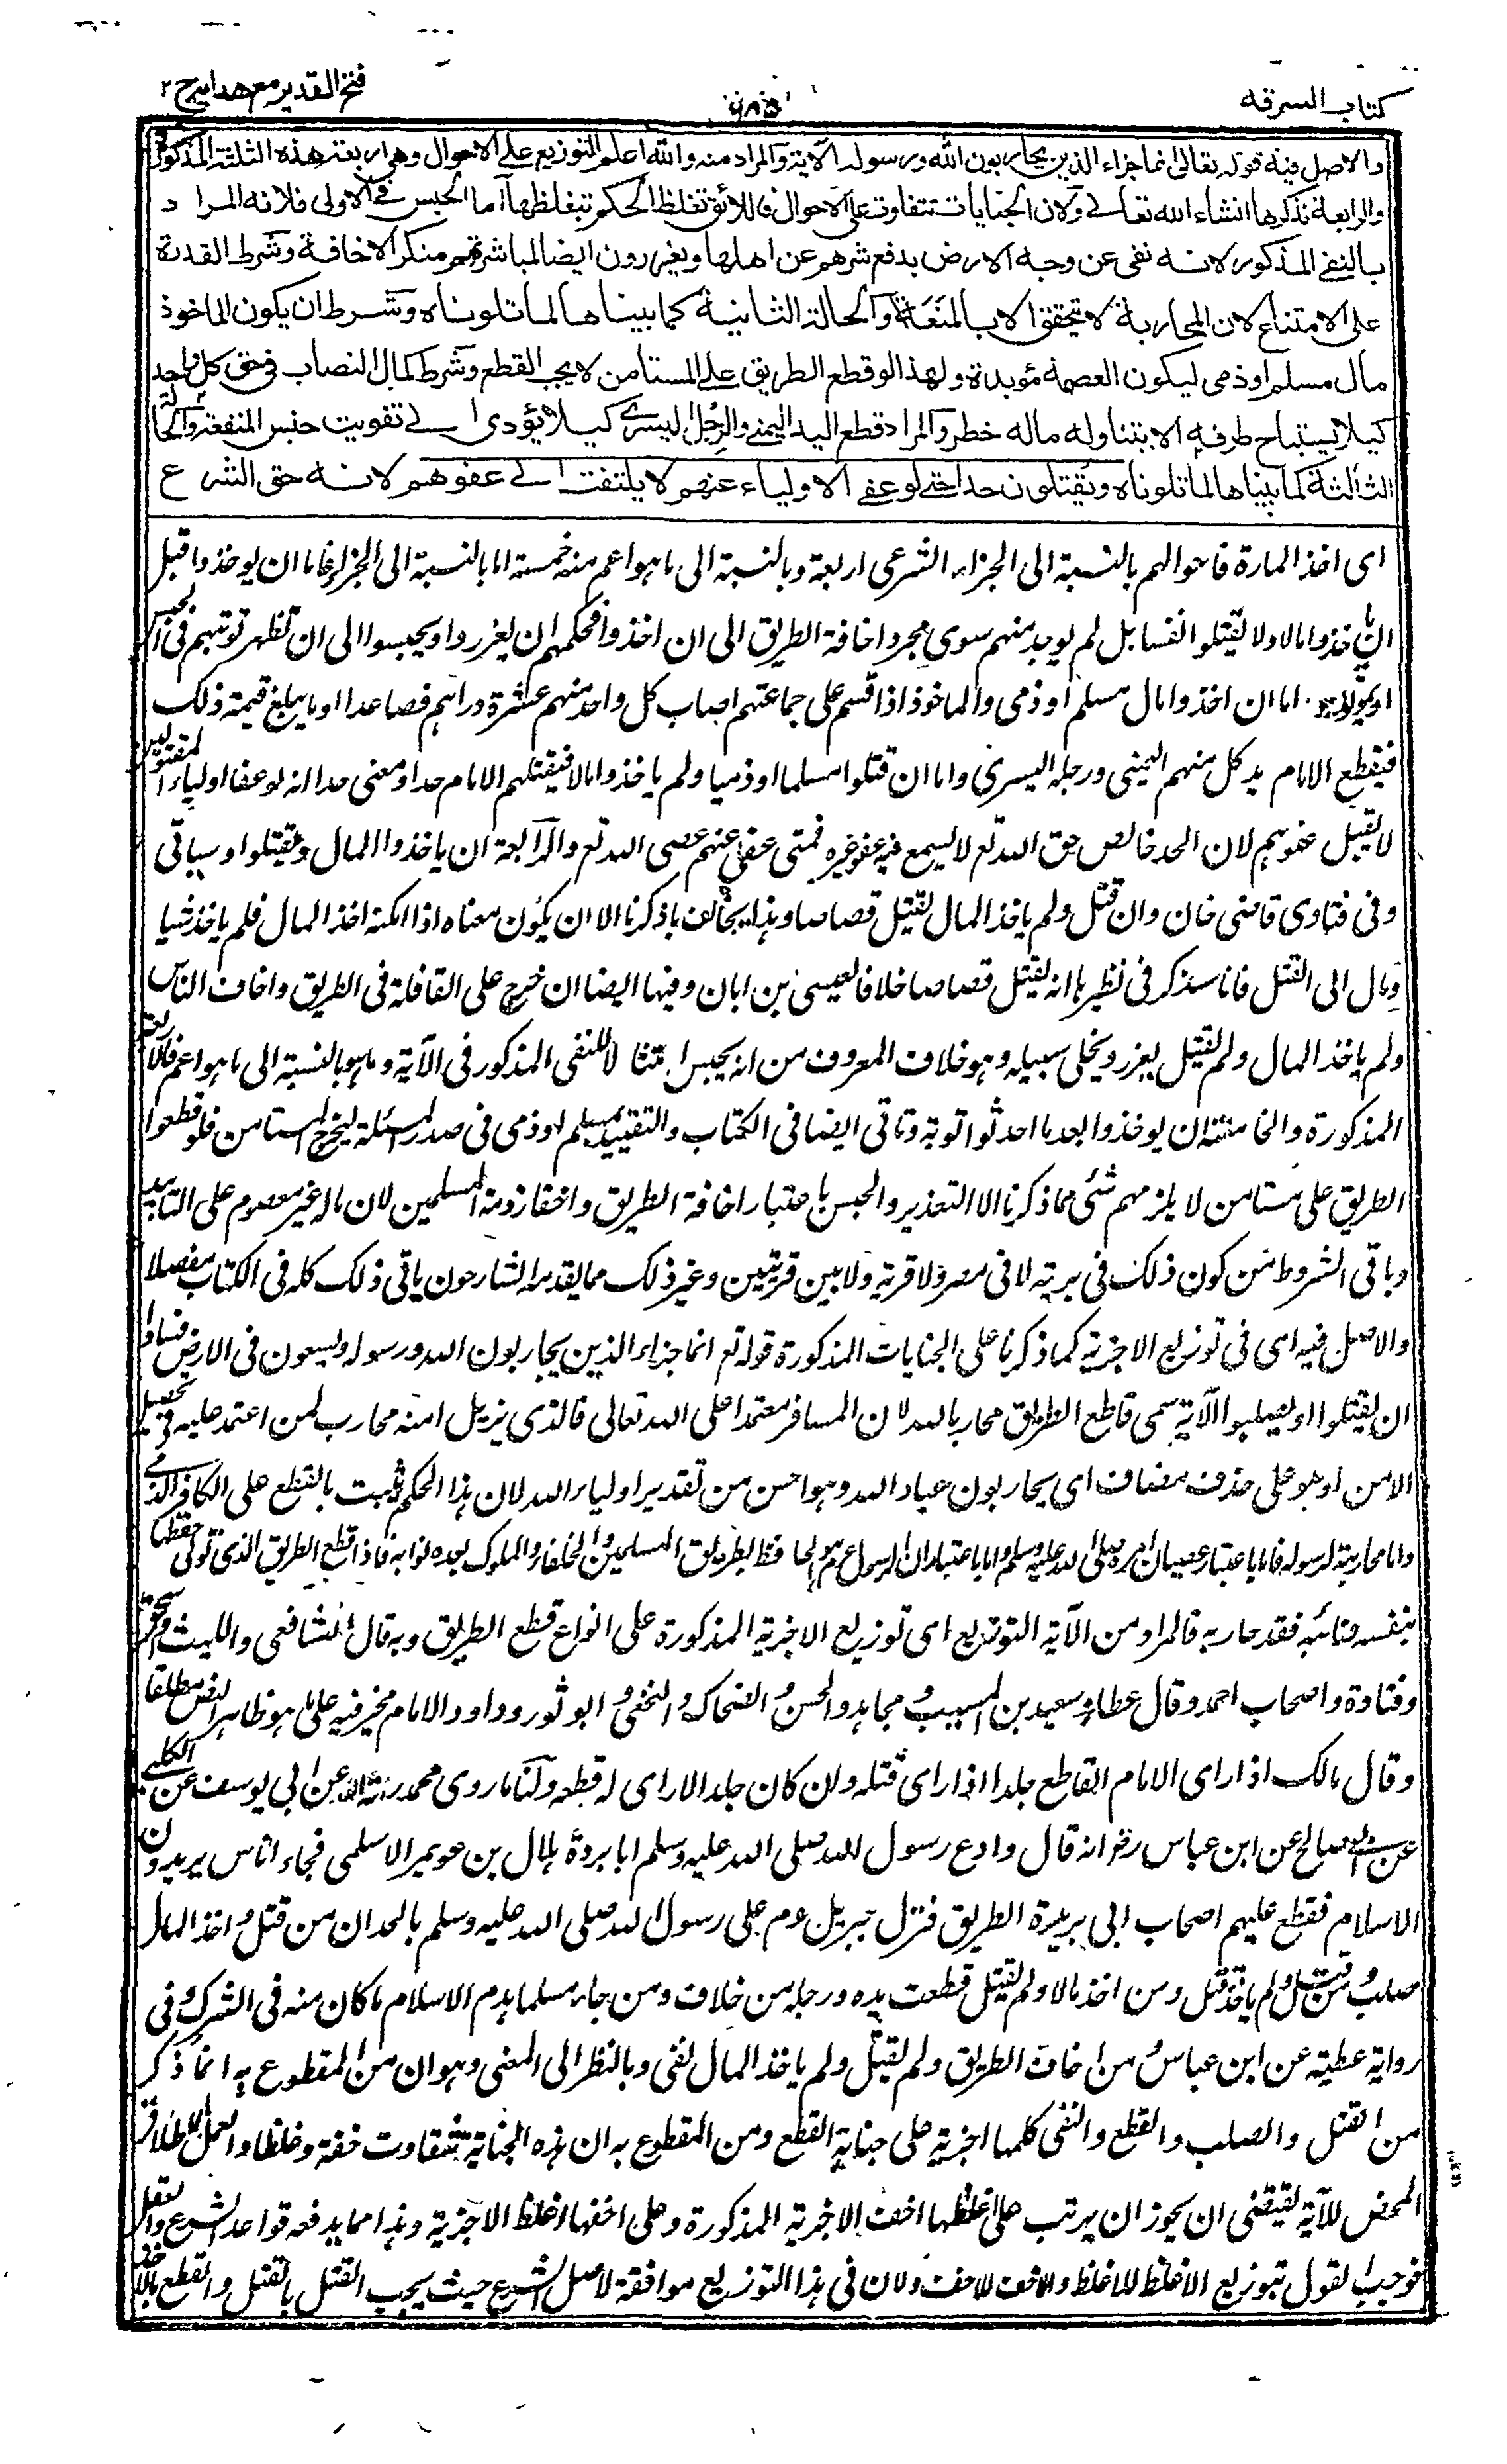 كتاب السرقه
فتح القدير مع هدايه ج ٢
والاصل فيه قوله تعالى انما جزاء الذين يحاربون الله ورسوله الآية والمراد منه والله اعلم التوزيع على الاحوال وهى اربعة هذه الثلثة المذكورة
والرابعة نذكرها انشاء الله تعالى ولان الجنايات تتفاوت على الاحوال فاللائق تغلظ الحكم بتغلظها اما الحبس فى الاولى فلانه المراد
بالنفي المذكور لانه نفى عن وجه الارض بدفع شرهم عن اهلها ويعزرون ايضا لمباشرتهم منكر الاخافة وشرط القدرة
على الامتناع لان المحاربة لا تتحقق الا بالمنعة والحالة الثانية كما بيناها لما تلوناه وشرط ان يكون الماخوذ
مال مسلم او ذمى ليكون العصمة مؤبدة ولهذا لو قطع الطريق على المستامن لا يجب القطع وشرط كمال النصاب فى حق كل واحد
كيلا يستباح طرفه الا بتناوله ماله خطر والمراد قطع اليد اليمنى والرجل اليسرى كيلا يؤدى الى تفويت جنس المنفعة والحالة
الثالثة كما بيناها لما تلوناه ويقتلون حدا حتى لو عفى الاولياء عنهم لا يلتفت الى عفوهم لانه حق الشرع
اى اخذ المارة فاحوالهم بالنسبة الى الجزاء الشرعى اربعة وبالنسبة الى ما هو اعم منه خمسة اما بالنسبة الى الجزاء فاما ان يوخذوا قبل
ان ياخذوا مالا ولا يقتلوا نفسا بل لم يوجد منهم سوى مجرد اخافة الطريق الى ان اخذوا فحكمهم ان يعزروا ويحبسوا الى ان تظهر توبتهم فى الحبس
او يموتوا اما ان اخذوا مال مسلم او ذمى والماخوذ اذا قسم على جماعتهم اصاب كل واحد منهم عشرة دراهم فصاعدا او ما يبلغ قيمة ذلك
فيقطع الامام يد كل منهم اليمنى ورجله اليسرى واما ان قتلوا مسلما او ذميا ولم ياخذوا مالا فيقتلهم الامام حدا ومعنى حدا انه لو عفا اولياء المقتولين
لا يقبل عفوهم لان الحد خالص حق الله تع لا يسمع فيه عفو غيره فمتى عفا عنهم عصى الله تع والرابعة ان ياخذوا المال ويقتلوا وسياتى
وفى فتاوى قاضى خان وان قتل ولم ياخذ المال يقتل قصاصا وهذا يخالف ما ذكرنا الا ان يكون معناه اذا امكنه اخذ المال فلم ياخذ شيا
ومال الى القتل فانا سنذكر فى نظيرها انه يقتل قصاصا خلافا لعيسى بن ابان وفيها ايضا ان خرج على القافلة فى الطريق واخاف الناس
ولم ياخذ المال ولم يقتل يعزر ويخلى سبيله وهو خلاف المعروف من انه يحبس امتثالا للنفى المذكور فى الآية وما هو بالنسبة الى ما هو اعم فالاربعة
المذكورة والخامسة ان يوخذوا بعد ما احدثوا توبة وتاتى ايضا فى الكتاب والتقييد بمسلم او ذمى فى صدر المسئلة ليخرج المستامن فلو قطعوا
الطريق على مستامن لا يلزمهم شئ مما ذكرنا الا التعذير والحبس باعتبار اخافة الطريق واخفار ذمة المسلمين لان ماله غير معصوم على التابيد
وباقى الشروط من كون ذلك فى برية لا فى مصر ولا قرية ولا بين قريتين وغير ذلك مما يقدره الشارحون ياتى ذلك كله فى الكتاب مفصلا
والاصل فيه اى فى توزيع الاجزية كما ذكرنا على الجنايات المذكورة قوله تع انما جزاء الذين يحاربون الله ورسوله ويسعون فى الارض فسادا
ان يقتلوا او يصلبوا الآية سمى قاطع الطريق محاربا لله لان المسافر معتمدا على الله تعالى فالذى يزيل امنه محارب لمن اعتمد عليه فى تحصيل
الامن او هو على حذف مضاف اى يحاربون عباد الله وهو احسن من تقدير اولياء الله لان هذا الحكم يثبت بالقطع على الكافر الذمى
واما محاربة لرسوله فاما باعتبار عصيان امره صلى الله عليه وسلم واما باعتبار ان الرسول عم هو الحافظ لطريق المسلمين والخلفاء والملوك بعده نوابه فاذا قطع الطريق الذى تولى حفظها
بنفسه ونائبه فقد حاربه فالمراد من الآية التوزيع اى توزيع الاجزية المذكورة على انواع قطع الطريق وبه قال الشافعى والليث واسحق
وقتادة واصحاب احمد وقال عطاء وسعيد بن المسيب ومجاهد والحسن والضحاك والنخعى وابو ثور وداود الامام مخير فيه على ما هو ظاهر النص مطلقا
وقال مالك اذا راى الامام القاطع جلدا اذا راى قتله وان كان جلد الا راى له قطعه ولنا ما روى محمد رحمه الله عن ابى يوسف عن الكلبى
عن ابى صالح عن ابن عباس رض انه قال وادع رسول الله صلى الله عليه وسلم ابا بردة هلال بن عويمر الاسلمى فجاء اناس يريدون
الاسلام فقطع عليهم اصحاب ابى بريرة الطريق فنزل جبريل عم على رسول الله صلى الله عليه وسلم بالحد ان من قتل واخذ المال
صلب ومن قتل ولم ياخذ قتل ومن اخذ مالا ولم يقتل قطعت يده ورجله من خلاف ومن جاء مسلما يهدم الاسلام ما كان منه فى الشرك وفى
رواية عطية عن ابن عباس من اخاف الطريق ولم يقتل ولم ياخذ المال نفى وبالنظر الى المعنى وهو ان من المقطوع به انما ذكر
من القتل والصلب والقطع والنفى كلها اجزية على جناية القطع ومن المقطوع به ان هذه الجناية تتفاوت خفة وغلظا والعمل بالاطلاق
المحض للآية يقتضى ان يجوز ان يرتب على اغلظها اخف الاجزية المذكورة وعلى اخفها اغلظ الاجزية وهذا مما يدفعه قواعد الشرع والعقل
فوجب القول بتوزيع الاغلظ للاغلظ والاخف للاخف ولان فى هذا التوزيع موافقة لاصل الشرع حيث يجب القتل بالقتل والقطع بالاخذ